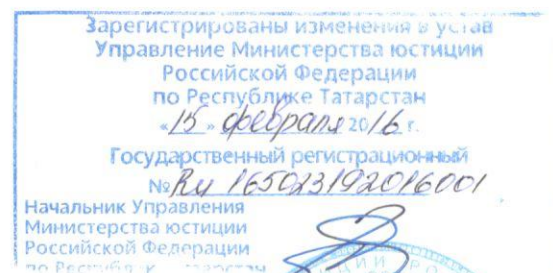 Зарегистрированы изменения в устав
Управление Министерства юстиции
Российской Федерации
по Республике Татарстан
«15» февраля 2016 г.
Государственный регистрационный
№ Ru 165023192016001
Начальник Управления
Министерства юстиции
Российской Федерации
по Республик